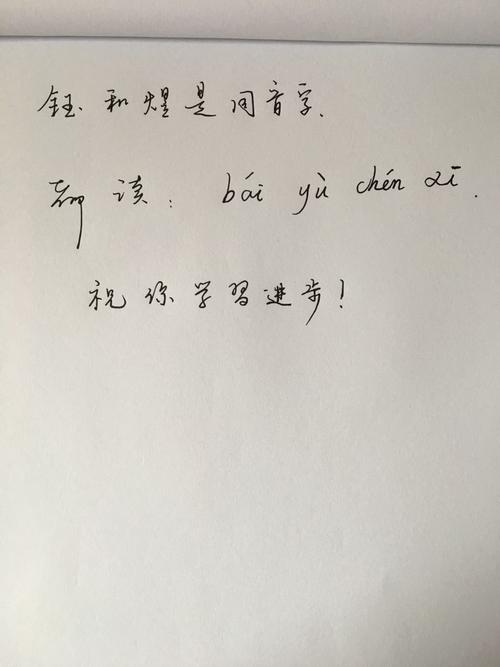 钰和煜是同音字.
都读: bái yù chén zī.
祝你学习进步!